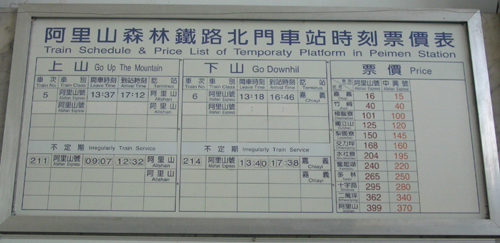 阿里山森林鐵路北門車站時刻票價表
Train Schedule & Price List of Temporaty Platform in Peimen Station
上山 Go Up The Mountain
下山 Go Downhil
票價 Price
車次 車種 開車時刻 到站時刻 站
Train No. Train Class Leave Time Arrival Time Terminus
5 阿里山號 13:37 17:12 阿里山
Alishan
阿里山號 阿里山
Alishan
車次 車種 開車時刻 到站時刻 站
Train No. Train Class Leave Time Arrival Time Terminus
6 阿里山號 13:18 16:46 嘉義
Chiayi
阿里山號 嘉義
Chiayi
不定期 Irregularly Train Service
211 阿里山號 09:07 12:32 阿里山
Alishan
阿里山
Alishan
不定期 Irregularly Train Service
214 阿里山號 13:40 17:38 嘉義
Chiayi
嘉義
Chiayi
阿里山號 中興號
嘉義 16 15
竹崎 40 40
樟腦寮 101 100
獨立山 125 120
梨園寮 150 145
交力坪 168 160
水社寮 204 195
奮起湖 230 220
多林 265 250
十字路 295 280
二萬坪 362 340
阿里山 399 370